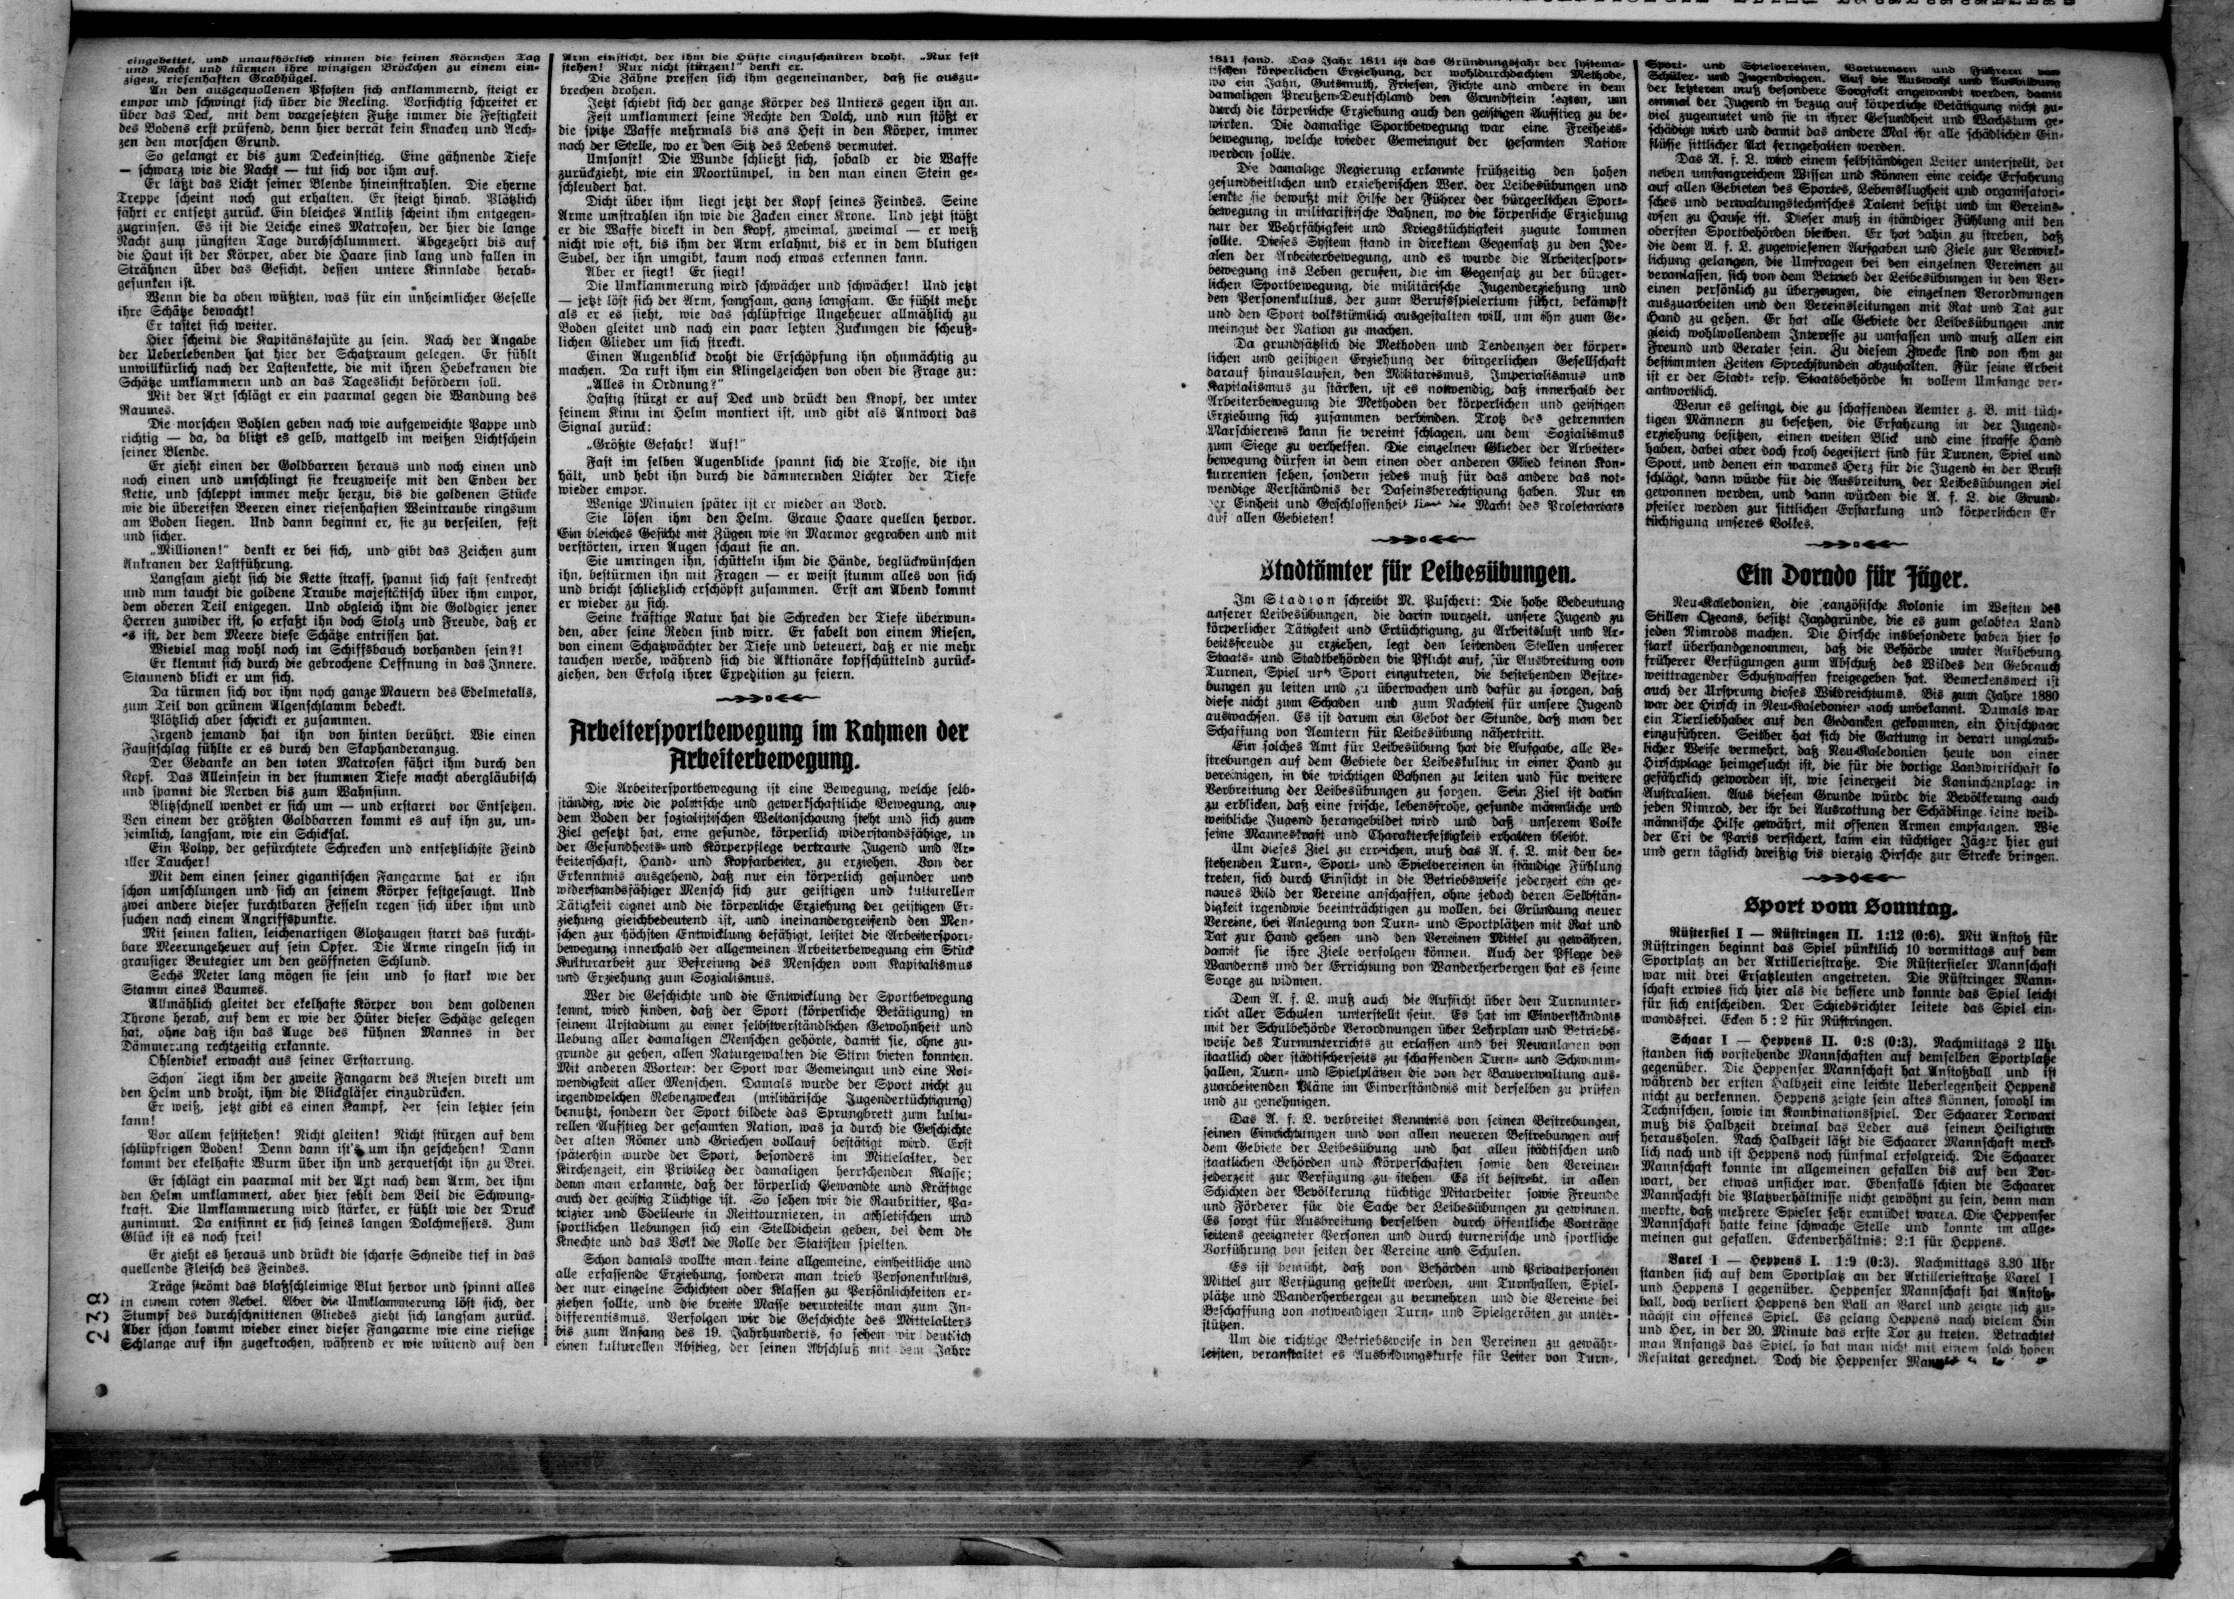 eingebettet, und unaufhörlich rinnen die feinen Körnchen Tag
und Nacht und türmen ihre winzigen Bröckchen zu einem ein-
zigen, riesenhaften Grabhügel.
An den ausgequollenen Pfosten sich anklammernd, steigt er
empor und schwingt sich über die Reeling. Vorsichtig schreitet er
über das Deck, mit dem vorgesetzten Fuße immer die Festigkeit
des Bodens erst prüfend, denn hier verrät kein Knacken und Aech-
zen den morschen Grund.
So gelangt er bis zum Deckeinstieg. Eine gähnende Tiefe
— schwarz wie die Nacht — tut sich vor ihm auf.
Er läßt das Licht seiner Blende hineinstrahlen. Die eherne
Treppe scheint noch gut erhalten. Er steigt hinab. Plötzlich
fährt er entsetzt zurück. Ein bleiches Antlitz scheint ihm entgegen-
zugrinsen. Es ist die Leiche eines Matrosen, der hier die lange
Nacht zum jüngsten Tage durchschlummert. Abgezehrt bis auf
die Haut ist der Körper, aber die Haare sind lang und fallen in
Strähnen über das Gesicht, dessen untere Kinnlade herab-
gesunken ist.
Wenn die da oben wüßten, was für ein unheimlicher Geselle
ihre Schätze bewacht!
Er tastet sich weiter.
Hier scheint die Kapitänskajüte zu sein. Nach der Angabe
der Ueberlebenden hat hier der Schatzraum gelegen. Er fühlt
unwillkürlich nach der Lastenkette, die mit ihren Hebekranen die
Schätze umklammern und an das Tageslicht befördern soll.
Mit der Axt schlägt er ein paarmal gegen die Wandung des
Raumes.
Die morschen Bohlen geben nach wie aufgeweichte Pappe und
richtig — da, da blitzt es gelb, mattgelb im weißen Lichtschein
seiner Blende.
Er zieht einen der Goldbarren heraus und noch einen und
noch einen und umschlingt sie kreuzweise mit den Enden der
Kette, und schleppt immer mehr herzu, bis die goldenen Stücke
wie die übereifen Beeren einer riesenhaften Weintraube ringsum
am Boden liegen. Und dann beginnt er, sie zu verseilen, fest
und sicher.
„Millionen!“ denkt er bei sich, und gibt das Zeichen zum
Ankranen der Lastführung.
Langsam zieht sich die Kette straff, spannt sich fast senkrecht
und nun taucht die goldene Traube majestätisch über ihm empor,
dem oberen Teil entgegen. Und obgleich ihm die Goldgier jener
Herren zuwider ist, so erfaßt ihn doch Stolz und Freude, daß er
es ist, der dem Meere diese Schätze entrissen hat.
Wieviel mag wohl noch im Schiffsbauch vorhanden sein?!
Er klemmt sich durch die gebrochene Oeffnung in das Innere.
Staunend blickt er um sich.
Da türmen sich vor ihm noch ganze Mauern des Edelmetalls,
zum Teil von grünem Algenschlamm bedeckt.
Plötzlich aber schrickt er zusammen.
Irgend jemand hat ihn von hinten berührt. Wie einen
Faustschlag fühlte er es durch den Skaphanderanzug.
Der Gedanke an den toten Matrosen fährt ihm durch den
Kopf. Das Alleinsein in der stummen Tiefe macht abergläubisch
und spannt die Nerven bis zum Wahnsinn.
Blitzschnell wendet er sich um — und erstarrt vor Entsetzen.
Von einem der größten Goldbarren kommt es auf ihn zu, un-
heimlich, langsam, wie ein Schicksal.
Ein Polyp, der gefürchtete Schrecken und entsetzlichste Feind
aller Taucher!
Mit dem einen seiner gigantischen Fangarme hat er ihn
schon umschlungen und sich an seinem Körper festgesaugt. Und
zwei andere dieser furchtbaren Fesseln regen sich über ihm und
suchen nach einem Angriffspunkte.
Mit seinen kalten, leichenartigen Glotzaugen starrt das furcht-
bare Meerungeheuer auf sein Opfer. Die Arme ringeln sich in
grausiger Beutegier um den geöffneten Schlund.
Sechs Meter lang mögen sie sein und so stark wie der
Stamm eines Baumes.
Allmählich gleitet der ekelhafte Körper von dem goldenen
Throne herab, auf dem er wie der Hüter dieser Schätze gelegen
hat, ohne daß ihn das Auge des kühnen Mannes in der
Dämmerung rechtzeitig erkannte.
Ohlendiek erwacht aus seiner Erstarrung.
Schon liegt ihm der zweite Fangarm des Riesen direkt um
den Helm und droht, ihm die Blickgläser einzudrücken.
Er weiß, jetzt gibt es einen Kampf, der sein letzter sein
kann!
Vor allem feststehen! Nicht gleiten! Nicht stürzen auf dem
schlüpfrigen Boden! Denn dann ist's um ihn geschehen! Dann
kommt der ekelhafte Wurm über ihn und zerquetscht ihn zu Brei.
Er schlägt ein paarmal mit der Axt nach dem Arm, der ihm
den Helm umklammert, aber hier fehlt dem Beil die Schwung-
kraft. Die Umklammerung wird stärker, er fühlt wie der Druck
zunimmt. Da entsinnt er sich seines langen Dolchmessers. Zum
Glück ist es noch frei!
Er zieht es heraus und drückt die scharfe Schneide tief in das
quellende Fleisch des Feindes.
Träge strömt das blaßschleimige Blut hervor und spinnt alles
in einem roten Nebel. Aber die Umklammerung löst sich, der
Stumpf des durchschnittenen Gliedes zieht sich langsam zurück.
Aber schon kommt wieder einer dieser Fangarme wie eine riesige
Schlange auf ihn zugekrochen, während er wie wütend auf den
238
Arm einsticht, der ihm die Hüfte einzuschnüren droht. „Nur fest
stehen! Nur nicht stürzen!“ denkt er.
Die Zähne pressen sich ihm gegeneinander, daß sie auszu-
brechen drohen.
Jetzt schiebt sich der ganze Körper des Untiers gegen ihn an.
Fest umklammert seine Rechte den Dolch, und nun stößt er
die spitze Waffe mehrmals bis ans Heft in den Körper, immer
nach der Stelle, wo er den Sitz des Lebens vermutet.
Umsonst! Die Wunde schließt sich, sobald er die Waffe
zurückzieht, wie ein Moortümpel, in den man einen Stein ge-
schleudert hat.
Dicht über ihm liegt jetzt der Kopf seines Feindes. Seine
Arme umstrahlen ihn wie die Zacken einer Krone. Und jetzt stößt
er die Waffe direkt in den Kopf, zweimal, zweimal — er weiß
nicht wie oft, bis ihm der Arm erlahmt, bis er in dem blutigen
Sudel, der ihn umgibt, kaum noch etwas erkennen kann.
Aber er siegt! Er siegt!
Die Umklammerung wird schwächer und schwächer! Und jetzt
— jetzt löst sich der Arm, langsam, ganz langsam. Er fühlt mehr
als er es sieht, wie das schlüpfrige Ungeheuer allmählich zu
Boden gleitet und nach ein paar letzten Zuckungen die scheuß-
lichen Glieder um sich streckt.
Einen Augenblick droht die Erschöpfung ihn ohnmächtig zu
machen. Da ruft ihm ein Klingelzeichen von oben die Frage zu:
„Alles in Ordnung?“
Hastig stürzt er auf Deck und drückt den Knopf, der unter
seinem Kinn im Helm montiert ist, und gibt als Antwort das
Signal zurück:
„Größte Gefahr! Auf!“
Fast im selben Augenblicke spannt sich die Trosse, die ihn
hält, und hebt ihn durch die dämmernden Lichter der Tiefe
wieder empor.
Wenige Minuten später ist er wieder an Bord.
Sie lösen ihm den Helm. Graue Haare quellen hervor.
Ein bleiches Gesicht mit Zügen wie in Marmor gegraben und mit
verstörten, irren Augen schaut sie an.
Sie umringen ihn, schütteln ihm die Hände, beglückwünschen
ihn, bestürmen ihn mit Fragen — er weist stumm alles von sich
und bricht schließlich erschöpft zusammen. Erst am Abend kommt
er wieder zu sich.
Seine kräftige Natur hat die Schrecken der Tiefe überwun-
den, aber seine Reden sind wirr. Er fabelt von einem Riesen,
von einem Schatzwächter der Tiefe und beteuert, daß er nie mehr
tauchen werde, während sich die Aktionäre kopfschüttelnd zurück-
ziehen, den Erfolg ihrer Expedition zu feiern.
Arbeitersportbewegung im Rahmen der
Arbeiterbewegung.
Die Arbeitersportbewegung ist eine Bewegung, welche selb-
ständig, wie die politische und gewerkschaftliche Bewegung, auf
dem Boden der sozialistischen Weltanschauung steht und sich zum
Ziel gesetzt hat, eine gesunde, körperlich widerstandsfähige, in
der Gesundheits- und Körperpflege vertraute Jugend und Ar-
beiterschaft, Hand- und Kopfarbeiter, zu erziehen. Von der
Erkenntnis ausgehend, daß nur ein körperlich gesunder und
widerstandsfähiger Mensch sich zur geistigen und kulturellen
Tätigkeit eignet und die körperliche Erziehung der geistigen Er-
ziehung gleichbedeutend ist, und ineinandergreifend den Men-
schen zur höchsten Entwicklung befähigt, leistet die Arbeitersport-
bewegung innerhalb der allgemeinen Arbeiterbewegung ein Stück
Kulturarbeit zur Befreiung des Menschen vom Kapitalismus
und Erziehung zum Sozialismus.
Wer die Geschichte und die Entwicklung der Sportbewegung
kennt, wird finden, daß der Sport (körperliche Betätigung) in
seinem Urstadium zu einer selbstverständlichen Gewohnheit und
Uebung aller damaligen Menschen gehörte, damit sie, ohne zu-
grunde zu gehen, allen Naturgewalten die Stirn bieten konnten.
Mit anderen Worten: der Sport war Gemeingut und eine Not-
wendigkeit aller Menschen. Damals wurde der Sport nicht zu
irgendwelchen Nebenzwecken (militärische Jugendertüchtigung)
benutzt, sondern der Sport bildete das Sprungbrett zum kultu-
rellen Aufstieg der gesamten Nation, was ja durch die Geschichte
der alten Römer und Griechen vollauf bestätigt wird. Erst
späterhin wurde der Sport, besonders im Mittelalter, der
Kirchenzeit, ein Privileg der damaligen herrschenden Klasse;
denn man erkannte, daß der körperlich Gewandte und Kräftige
auch der geistig Tüchtige ist. So sehen wir die Raubritter, Pa-
trizier und Edelleute in Reittournieren, in athletischen und
sportlichen Uebungen sich ein Stelldichein geben, bei dem die
Knechte und das Volk die Rolle der Statisten spielten.
Schon damals wollte man keine allgemeine, einheitliche und
alle erfassende Erziehung, sondern man trieb Personenkultus,
der nur einzelne Schichten oder Klassen zu Persönlichkeiten er-
ziehen sollte, und die breite Masse verurteilte man zum In-
differentismus. Verfolgen wir die Geschichte des Mittelalters
bis zum Anfang des 19. Jahrhunderts, so sehen wir deutlich
einen kulturellen Abstieg, der seinen Abschluß mit dem Jahre
1811 fand. Das Jahr 1811 ist das Gründungsjahr der systema-
tischen körperlichen Erziehung, der wohldurchdachten Methode,
wo ein Jahn, Gutsmuth, Friesen, Fichte und andere in dem
damaligen Preußen-Deutschland den Grundstein legten, um
durch die körperliche Erziehung auch den geistigen Aufstieg zu be-
wirken. Die damalige Sportbewegung war eine Freiheits-
bewegung, welche wieder Gemeingut der gesamten Nation
werden sollte.
Die damalige Regierung erkannte frühzeitig den hohen
gesundheitlichen und erzieherischen Wer. der Leibesübungen und
lenkte sie bewußt mit Hilfe der Führer der bürgerlichen Sport-
bewegung in militaristische Bahnen, wo die körperliche Erziehung
nur der Wehrfähigkeit und Kriegstüchtigkeit zugute kommen
sollte. Dieses System stand in direktem Gegensatz zu den Ide-
alen der Arbeiterbewegung, und es wurde die Arbeitersport-
bewegung ins Leben gerufen, die im Gegensatz zu der bürger-
lichen Sportbewegung, die militärische Jugenderziehung und
den Personenkultus, der zum Berufsspielertum führt, bekämpft
und den Sport volkstümlich ausgestalten will, um ihn zum Ge-
meingut der Nation zu machen.
Da grundsätzlich die Methoden und Tendenzen der körper-
lichen und geistigen Erziehung der bürgerlichen Gesellschaft
darauf hinauslaufen, den Militarismus, Imperialismus und
Kapitalismus zu stärken, ist es notwendig, daß innerhalb der
Arbeiterbewegung die Methoden der körperlichen und geistigen
Erziehung sich zusammen verbinden. Trotz des getrennten
Marschierens kann sie vereint schlagen, um dem Sozialismus
zum Siege zu verhelfen. Die einzelnen Glieder der Arbeiter-
bewegung dürfen in dem einen oder anderen Glied keinen Kon-
kurrenten sehen, sondern jedes muß für das andere das not-
wendige Verständnis der Daseinsberechtigung haben. Nur in
der Einheit und Geschlossenheit Macht des Proletariats
auf allen Gebieten!
Stadtämter für Leibesübungen.
Im Stadion schreibt M. Puschert: Die hohe Bedeutung
unserer Leibesübungen, die darin wurzelt, unsere Jugend zu
körperlicher Tätigkeit und Ertüchtigung, zu Arbeitslust und Ar-
beitsfreude zu erziehen, legt den leitenden Stellen unserer
Staats- und Stadtbehörden die Pflicht auf, für Ausbreitung von
Turnen, Spiel und Sport einzutreten, die bestehenden Bestre-
bungen zu leiten und zu überwachen und dafür zu sorgen, daß
diese nicht zum Schaden und zum Nachteil für unsere Jugend
auswachsen. Es ist darum ein Gebot der Stunde, daß man der
Schaffung von Aemtern für Leibesübung nähertritt.
Ein solches Amt für Leibesübung hat die Aufgabe, alle Be-
strebungen auf dem Gebiete der Leibeskultur in einer Hand zu
vereinigen, in die wichtigen Bahnen zu leiten und für weitere
Verbreitung der Leibesübungen zu sorgen. Sein Ziel ist darin
zu erblicken, daß eine frische, lebensfrohe, gesunde männliche und
weibliche Jugend herangebildet wird und daß unserem Volke
seine Manneskraft und Charakterfestigkeit erhalten bleibt.
Um dieses Ziel zu erreichen, muß das A. f. L. mit den be-
stehenden Turn-, Sport- und Spielvereinen in ständige Fühlung
treten, sich durch Einsicht in die Betriebsweise jederzeit ein ge-
naues Bild der Vereine anschaffen, ohne jedoch deren Selbstän-
digkeit irgendwie beeinträchtigen zu wollen, bei Gründung neuer
Vereine, bei Anlegung von Turn- und Sportplätzen mit Rat und
Tat zur Hand gehen und den Vereinen Mittel zu gewähren,
damit sie ihre Ziele verfolgen können. Auch der Pflege des
Wanderns und der Errichtung von Wanderherbergen hat es seine
Sorge zu widmen.
Dem A. f. L. muß auch die Aufsicht über den Turnunter-
richt aller Schulen unterstellt sein. Es hat im Einverständnis
mit der Schulbehörde Verordnungen über Lehrplan und Betriebs-
weise des Turnunterrichts zu erlassen und bei Neuanlagen von
staatlich oder städtischerseits zu schaffenden Turn- und Schwimm-
hallen, Turn- und Spielplätzen die von der Bauverwaltung aus-
zuarbeitenden Pläne im Einverständnis mit derselben zu prüfen
und zu genehmigen.
Das A. f. L. verbreitet Kenntnis von seinen Bestrebungen,
seinen Einrichtungen und von allen neueren Bestrebungen auf
dem Gebiete der Leibesübung und hat allen städtischen und
staatlichen Behörden und Körperschaften sowie den Vereinen
jederzeit zur Verfügung zu stehen. Es ist bestrebt, in allen
Schichten der Bevölkerung tüchtige Mitarbeiter sowie Freunde
und Förderer für die Sache der Leibesübungen zu gewinnen.
Es sorgt für Ausbreitung derselben durch öffentliche Vorträge
seitens geeigneter Personen und durch turnerische und sportliche
Vorführung von seiten der Vereine und Schulen.
Es ist bemüht, daß von Behörden und Privatpersonen
Mittel zur Verfügung gestellt werden, um Turnhallen, Spiel-
plätze und Wanderherbergen zu vermehren und die Vereine bei
Beschaffung von notwendigen Turn- und Spielgeräten zu unter-
stützen.
Um die richtige Betriebsweise in den Vereinen zu gewähr-
leisten, veranstaltet es Ausbildungskurse für Leiter von Turn-,
Sport- und Spielvereinen, Vorturnern und Führern von
Schüler- und Jugendriegen. Auf die Auswahl und Ausbildung
der letzteren muß besondere Sorgfalt angewandt werden, damit
einmal der Jugend in bezug auf körperliche Betätigung nicht zu-
viel zugemutet und sie in ihrer Gesundheit und Wachstum ge-
schädigt wird und damit das andere Mal ihr alle schädlichen Ein-
flüsse sittlicher Art ferngehalten werden.
Das A. f. L. wird einem selbständigen Leiter unterstellt, der
neben umfangreichem Wissen und Können eine reiche Erfahrung
auf allen Gebieten des Sportes, Lebensklugheit und organisatori-
sches und verwaltungstechnisches Talent besitzt und im Vereins-
wesen zu Hause ist. Dieser muß in ständiger Fühlung mit den
obersten Sportbehörden bleiben. Er hat dahin zu streben, daß
die dem A. f. L. zugewiesenen Aufgaben und Ziele zur Verwirk-
lichung gelangen, die Umfragen bei den einzelnen Vereinen zu
veranlassen, sich von dem Betrieb der Leibesübungen in den Ver-
einen persönlich zu überzeugen, die einzelnen Verordnungen
auszuarbeiten und den Vereinsleitungen mit Rat und Tat zur
Hand zu gehen. Er hat alle Gebiete der Leibesübungen mit
gleich wohlwollendem Interesse zu umfassen und muß allen ein
Freund und Berater sein. Zu diesem Zwecke sind von ihm zu
bestimmten Zeiten Sprechstunden abzuhalten. Für seine Arbeit
ist er der Stadt- resp. Staatsbehörde in vollem Umfange ver-
antwortlich.
Wenn es gelingt, die zu schaffenden Aemter z. B. mit tüch-
tigen Männern zu besetzen, die Erfahrung in der Jugend-
erziehung besitzen, einen weiten Blick und eine straffe Hand
haben, dabei aber doch froh begeistert sind für Turnen, Spiel und
Sport, und denen ein warmes Herz für die Jugend in der Brust
schlägt, dann würde für die Ausbreitung der Leibesübungen viel
gewonnen werden, und dann würden die A. f. L. die Grund-
pfeiler werden zur sittlichen Erstarkung und körperlichen Er
tüchtigung unseres Volkes.
Ein Dorado für Jäger.
Neu-Kaledonien, die französische Kolonie im Westen des
Stillen Ozeans, besitzt Jagdgründe, die es zum gelobten Land
jeden Nimrods machen. Die Hirsche insbesondere haben hier so
stark überhandgenommen, daß die Behörde unter Aufhebung
früherer Verfügungen zum Abschuß des Wildes den Gebrauch
weittragender Schußwaffen freigegeben hat. Bemerkenswert ist
auch der Ursprung dieses Wildreichtums. Bis zum Jahre 1880
war der Hirsch in Neu-Kaledonien noch unbekannt. Damals war
ein Tierliebhaber auf den Gedanken gekommen, ein Hirschpaar
einzuführen. Seither hat sich die Gattung in derart unglaub-
licher Weise vermehrt, daß Neu-Kaledonien heute von einer
Hirschplage heimgesucht ist, die für die dortige Landwirtschaft so
gefährlich geworden ist, wie seinerzeit die Kaninchenplage in
Australien. Aus diesem Grunde würde die Bevölkerung auch
jeden Nimrod, der ihr bei Ausrottung der Schädlinge seine weid-
männische Hilfe gewährt, mit offenen Armen empfangen. Wie
der Cri de Paris versichert, kann ein tüchtiger Jäger hier gut
und gern täglich dreißig bis vierzig Hirsche zur Strecke bringen.
Sport vom Sonntag.
Rüstersiel I — Rüstringen II. 1:12 (0:6). Mit Anstoß für
Rüstringen beginnt das Spiel pünktlich 10 vormittags auf dem
Sportplatz an der Artilleriestraße. Die Rüstersieler Mannschaft
war mit drei Ersatzleuten angetreten. Die Rüstringer Mann-
schaft erwies sich hier als die bessere und konnte das Spiel leicht
für sich entscheiden. Der Schiedsrichter leitete das Spiel ein-
wandsfrei. Ecken 5 : 2 für Rüstringen.
Schaar I — Heppens II. 0:8 (0:3). Nachmittags 2 Uhr
standen sich vorstehende Mannschaften auf demselben Sportplatze
gegenüber. Die Heppenser Mannschaft hat Anstoßball und ist
während der ersten Halbzeit eine leichte Ueberlegenheit Heppens
nicht zu verkennen. Heppens zeigte sein altes Können, sowohl im
Technischen, sowie im Kombinationsspiel. Der Schaarer Torwart
muß bis Halbzeit dreimal das Leder aus seinem Heiligtum
herausholen. Nach Halbzeit läßt die Schaarer Mannschaft merk-
lich nach und ist Heppens noch fünfmal erfolgreich. Die Schaarer
Mannschaft konnte im allgemeinen gefallen bis auf den Tor-
wart, der etwas unsicher war. Ebenfalls schien die Schaarer
Mannschaft die Platzverhältnisse nicht gewöhnt zu sein, denn man
merkte, daß mehrere Spieler sehr ermüdet waren. Die Heppenser
Mannschaft hatte keine schwache Stelle und konnte im allge-
meinen gut gefallen. Eckenverhältnis: 2:1 für Heppens.
Varel I — Heppens I. 1:9 (0:3). Nachmittags 3.30 Uhr
standen sich auf dem Sportplatz an der Artilleriestraße Varel I
und Heppens I gegenüber. Heppenser Mannschaft hat Anstoß-
ball, doch verliert Heppens den Ball an Varel und zeigte sich zu-
nächst ein offenes Spiel. Es gelang Heppens nach vielem Hin
und Her, in der 20. Minute das erste Tor zu treten. Betrachtet
man Anfangs das Spiel, so hat man nicht mit einem solch hohen
Resultat gerechnet. Doch die Heppenser